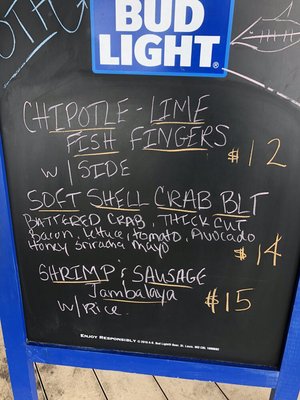 BUD
LIGHT
CHIPOTLE - LIME
FISH FINGERS
w/ SIDE
$12
SOFT SHELL CRAB BLT
BATTERED CRAB, THICK CUT
Bacon, Lettuce, tomato, Avocado
Honey Sriracha mayo
$14
SHRIMP & SAUSAGE
Jambalaya
w/ Rice
$15
ENJOY RESPONSIBLY